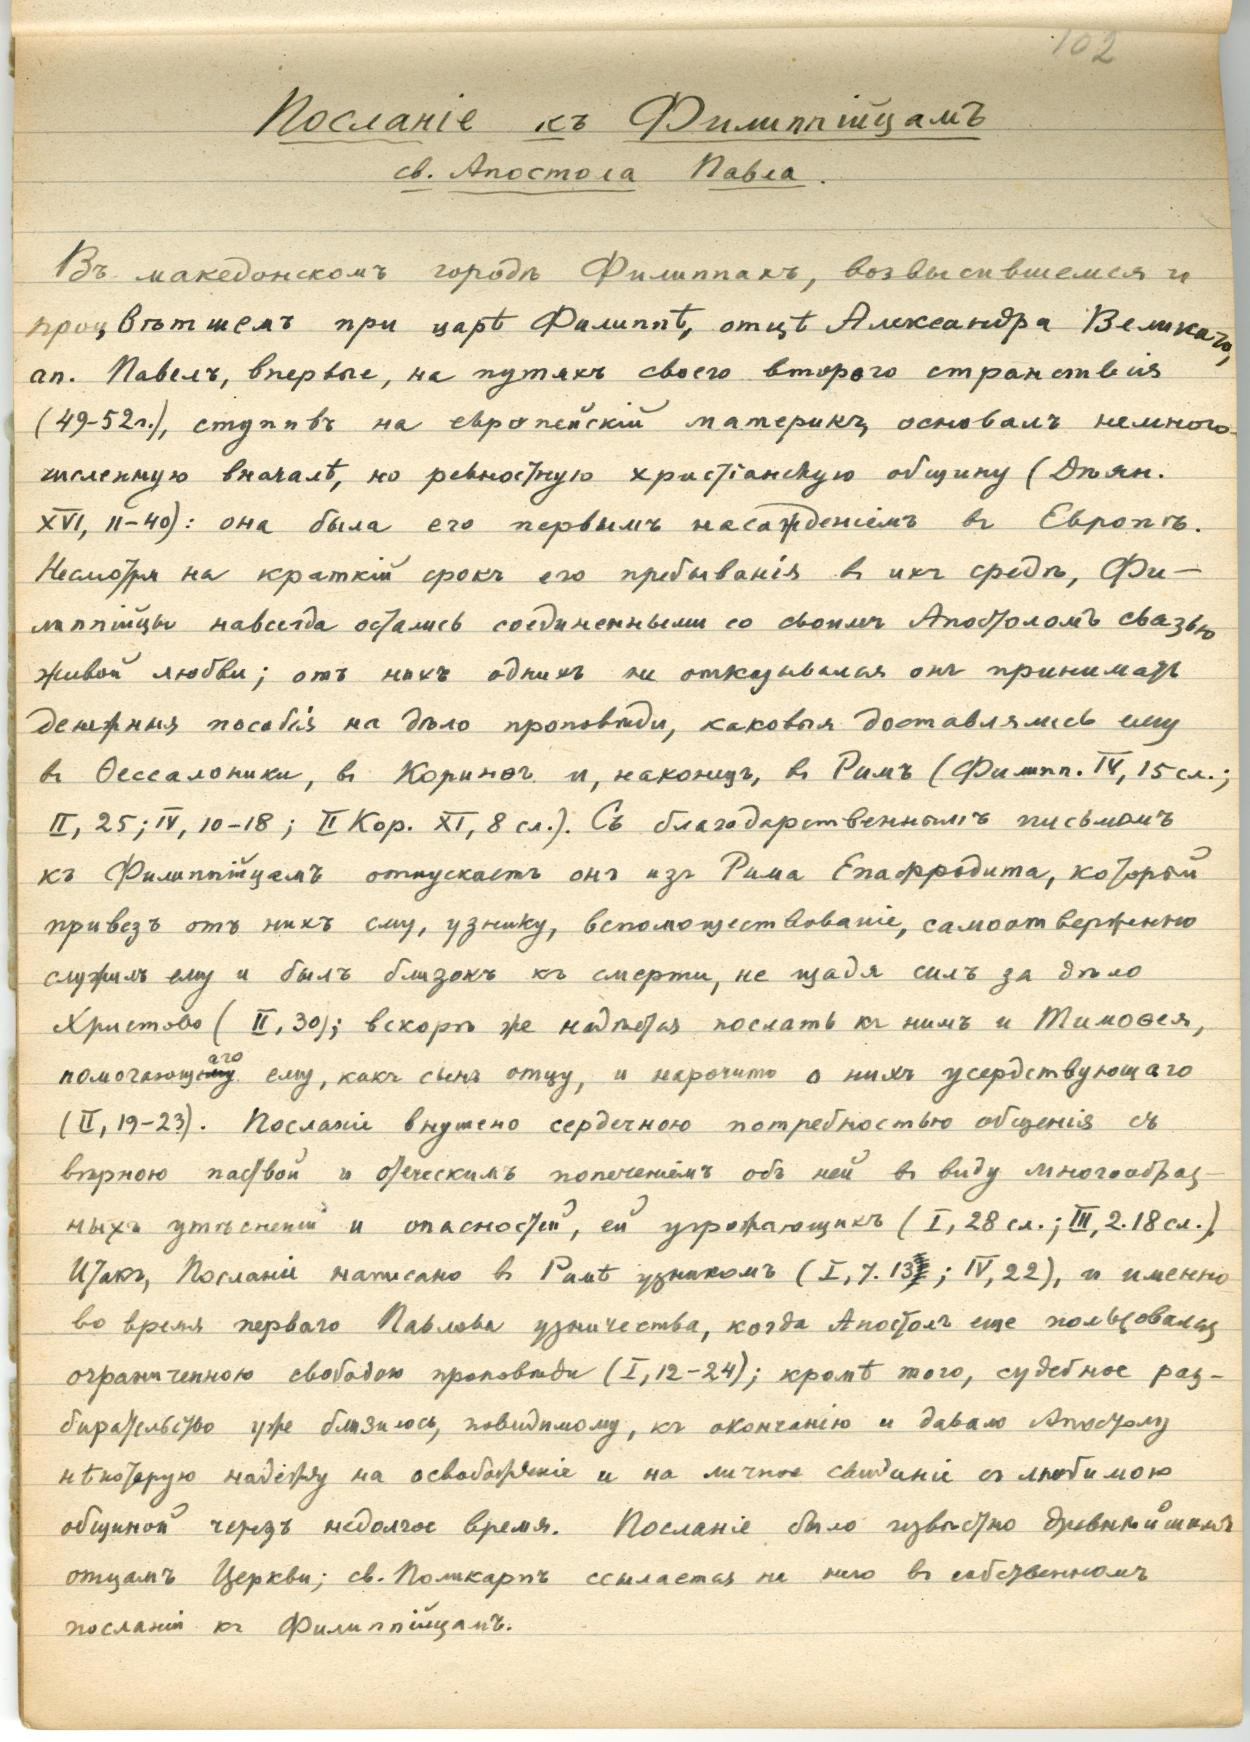 102
Посланіе къ Филиппійцамъ
св. Апостола Павла.
Въ македонскомъ городѣ Филиппахъ, возвысившемся и
процвѣтшемъ при царѣ Филиппѣ, отцѣ Александра Великаго,
ап. Павелъ, впервые, на путяхъ своего второго странствія
(49-52г.), ступивъ на европейскій материкъ, основалъ немного-
численную вначалѣ, но ревностную христіанскую общину (Дѣян.
XVI, 11-40): она была его первымъ насажденіемъ въ Европѣ.
Несмотря на краткій срокъ его пребыванія въ ихъ средѣ, Фи-
липпійцы навсегда остались соединенными со своимъ Апостоломъ связью
живой любви; отъ нихъ однихъ не отказывался онъ принимать
денежныя пособія на дѣло проповѣди, каковыя доставлялись ему
въ Ѳессалоники, въ Коринѳъ и, наконецъ, въ Римъ (Филип. IV, 15 сл.;
II, 25; IV, 10-18; II Кор. XI, 8 сл.). Съ благодарственнымъ письмомъ
къ Филиппійцамъ отпускаетъ онъ изъ Рима Епафродита, который
привезъ отъ нихъ ему, узнику, вспомоществованіе, самоотверженно
служилъ ему и былъ близокъ къ смерти, не щадя силъ за дѣло
Христово (II, 30); вскорѣ же надѣется послать къ нимъ и Тимоѳея,
помогающаго ему, какъ сынъ отцу, и нарочито о нихъ усердствующаго
(II, 19-23). Посланіе внушено сердечною потребностью общенія съ
вѣрною паствой и отеческимъ попеченіемъ объ ней въ виду многообраз-
ныхъ утѣсненій и опасностей, ей угрожающихъ (I, 28 сл.; III, 2. 18 сл.).
Итакъ, Посланіе написано въ Римѣ узникомъ (I, 7. 13; IV, 22), и именно
во время перваго Павлова узничества, когда Апостолъ еще пользовался
ограниченною свободою проповѣди (I, 12-24); кромѣ того, судебное раз-
бирательство уже близилось, повидимому, къ окончанію и давало Апостолу
нѣкоторую надежду на освобожденіе и на личное свиданіе съ любимою
общиной черезъ недолгое время. Посланіе было извѣстно древнѣйшимъ
отцамъ Церкви; св. Поликарпъ ссылается на него въ собственномъ
посланіи къ Филиппійцамъ.